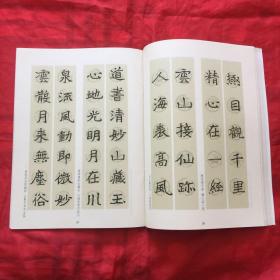 目觀千里
精心在一經
雲山接仙跡
人海高風
道書清妙山藏王
心地光明月在川
泉流風動即微妙
雲散月來無塵俗